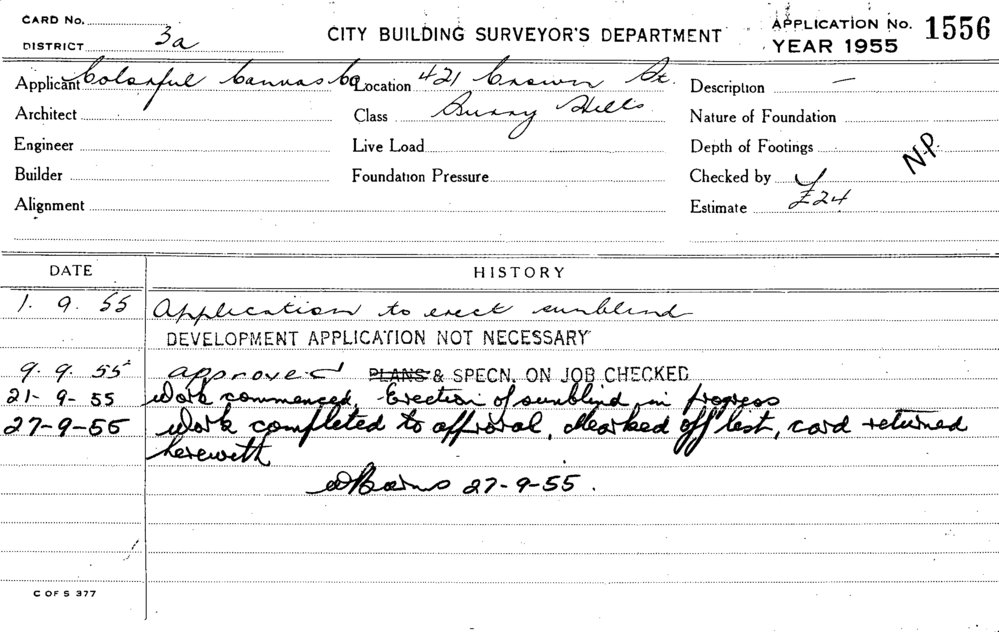 CARD No.
DISTRICT 3a
CITY BUILDING SURVEYOR'S DEPARTMENT
APPLICATION No. 1556
YEAR 1955
Applicant Colorful Canvas Co Location 421 Crown St. Description —
Architect Class Surry Hills Nature of Foundation
Engineer Live Load Depth of Footings N.P.
Builder Foundation Pressure Checked by
Alignment Estimate £24
DATE HISTORY
1. 9. 55 Application to erect sunblind
DEVELOPMENT APPLICATION NOT NECESSARY
9. 9. 55 approved PLANS & SPECN. ON JOB CHECKED
21-9-55 Work commenced, Erection of sunblind in progress
27-9-55 Work completed to approval, Marked off list, card returned
herewith
27-9-55.
C OF S 377